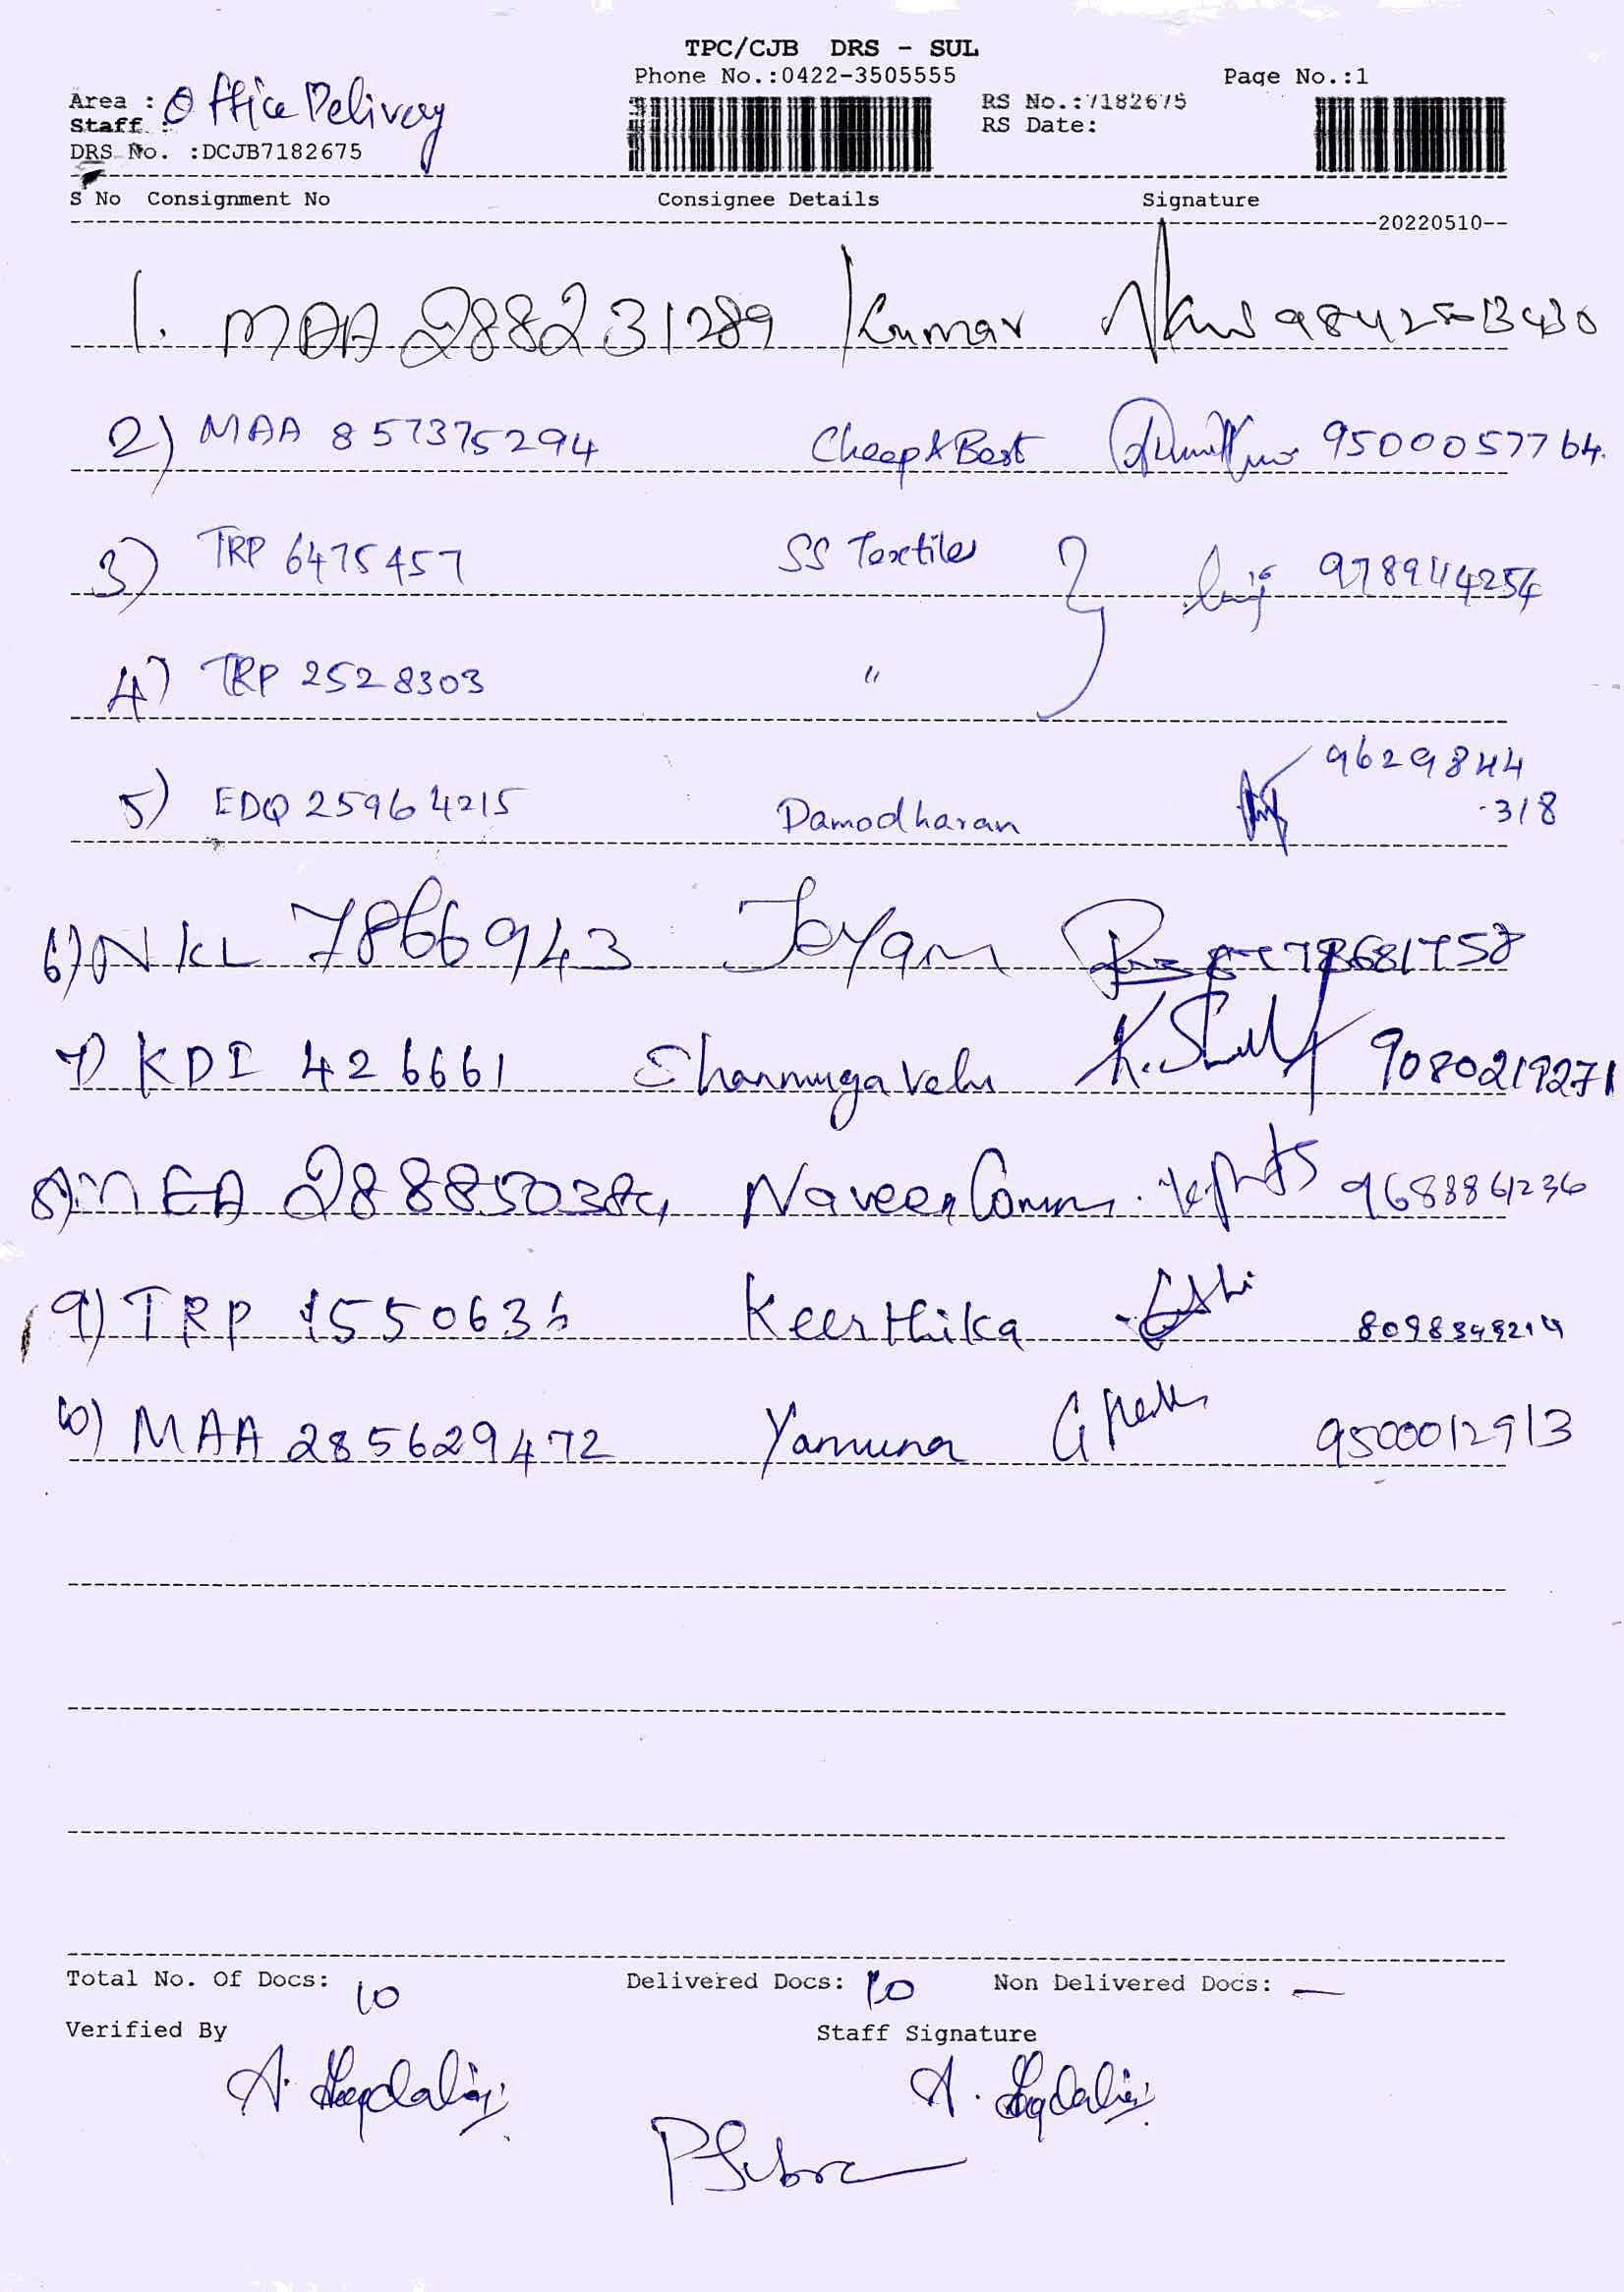 TPC/CJB DRS - SUL
Phone No.:0422-3505555 Page No.:1
Area : Office Delivery
Staff :
RS No.:7182675
RS Date:
DRS No. :DCJB7182675
S No Consignment No Consignee Details Signature
20220510
1. MAA 288231289 Kumar
2) MAA 857375294 Cheap & Best 9500057764.
3) TRP 6475457 SS Textiles 978944254
4) TRP 2528303 "
5) EDQ 25964215 Damodharan 9629844
-318
6) NKL 7866943 Joyam
7) KDI 426661 Shanmugavelu K. 9080219271
8) MEA Naveen Comm. 9688861236
9) TRP 1550636 Keerthika
10) MAA 285629472 Yamuna 9500012913
Total No. Of Docs: 10 Delivered Docs: 10 Non Delivered Docs: —
Verified By Staff Signature
A. A.